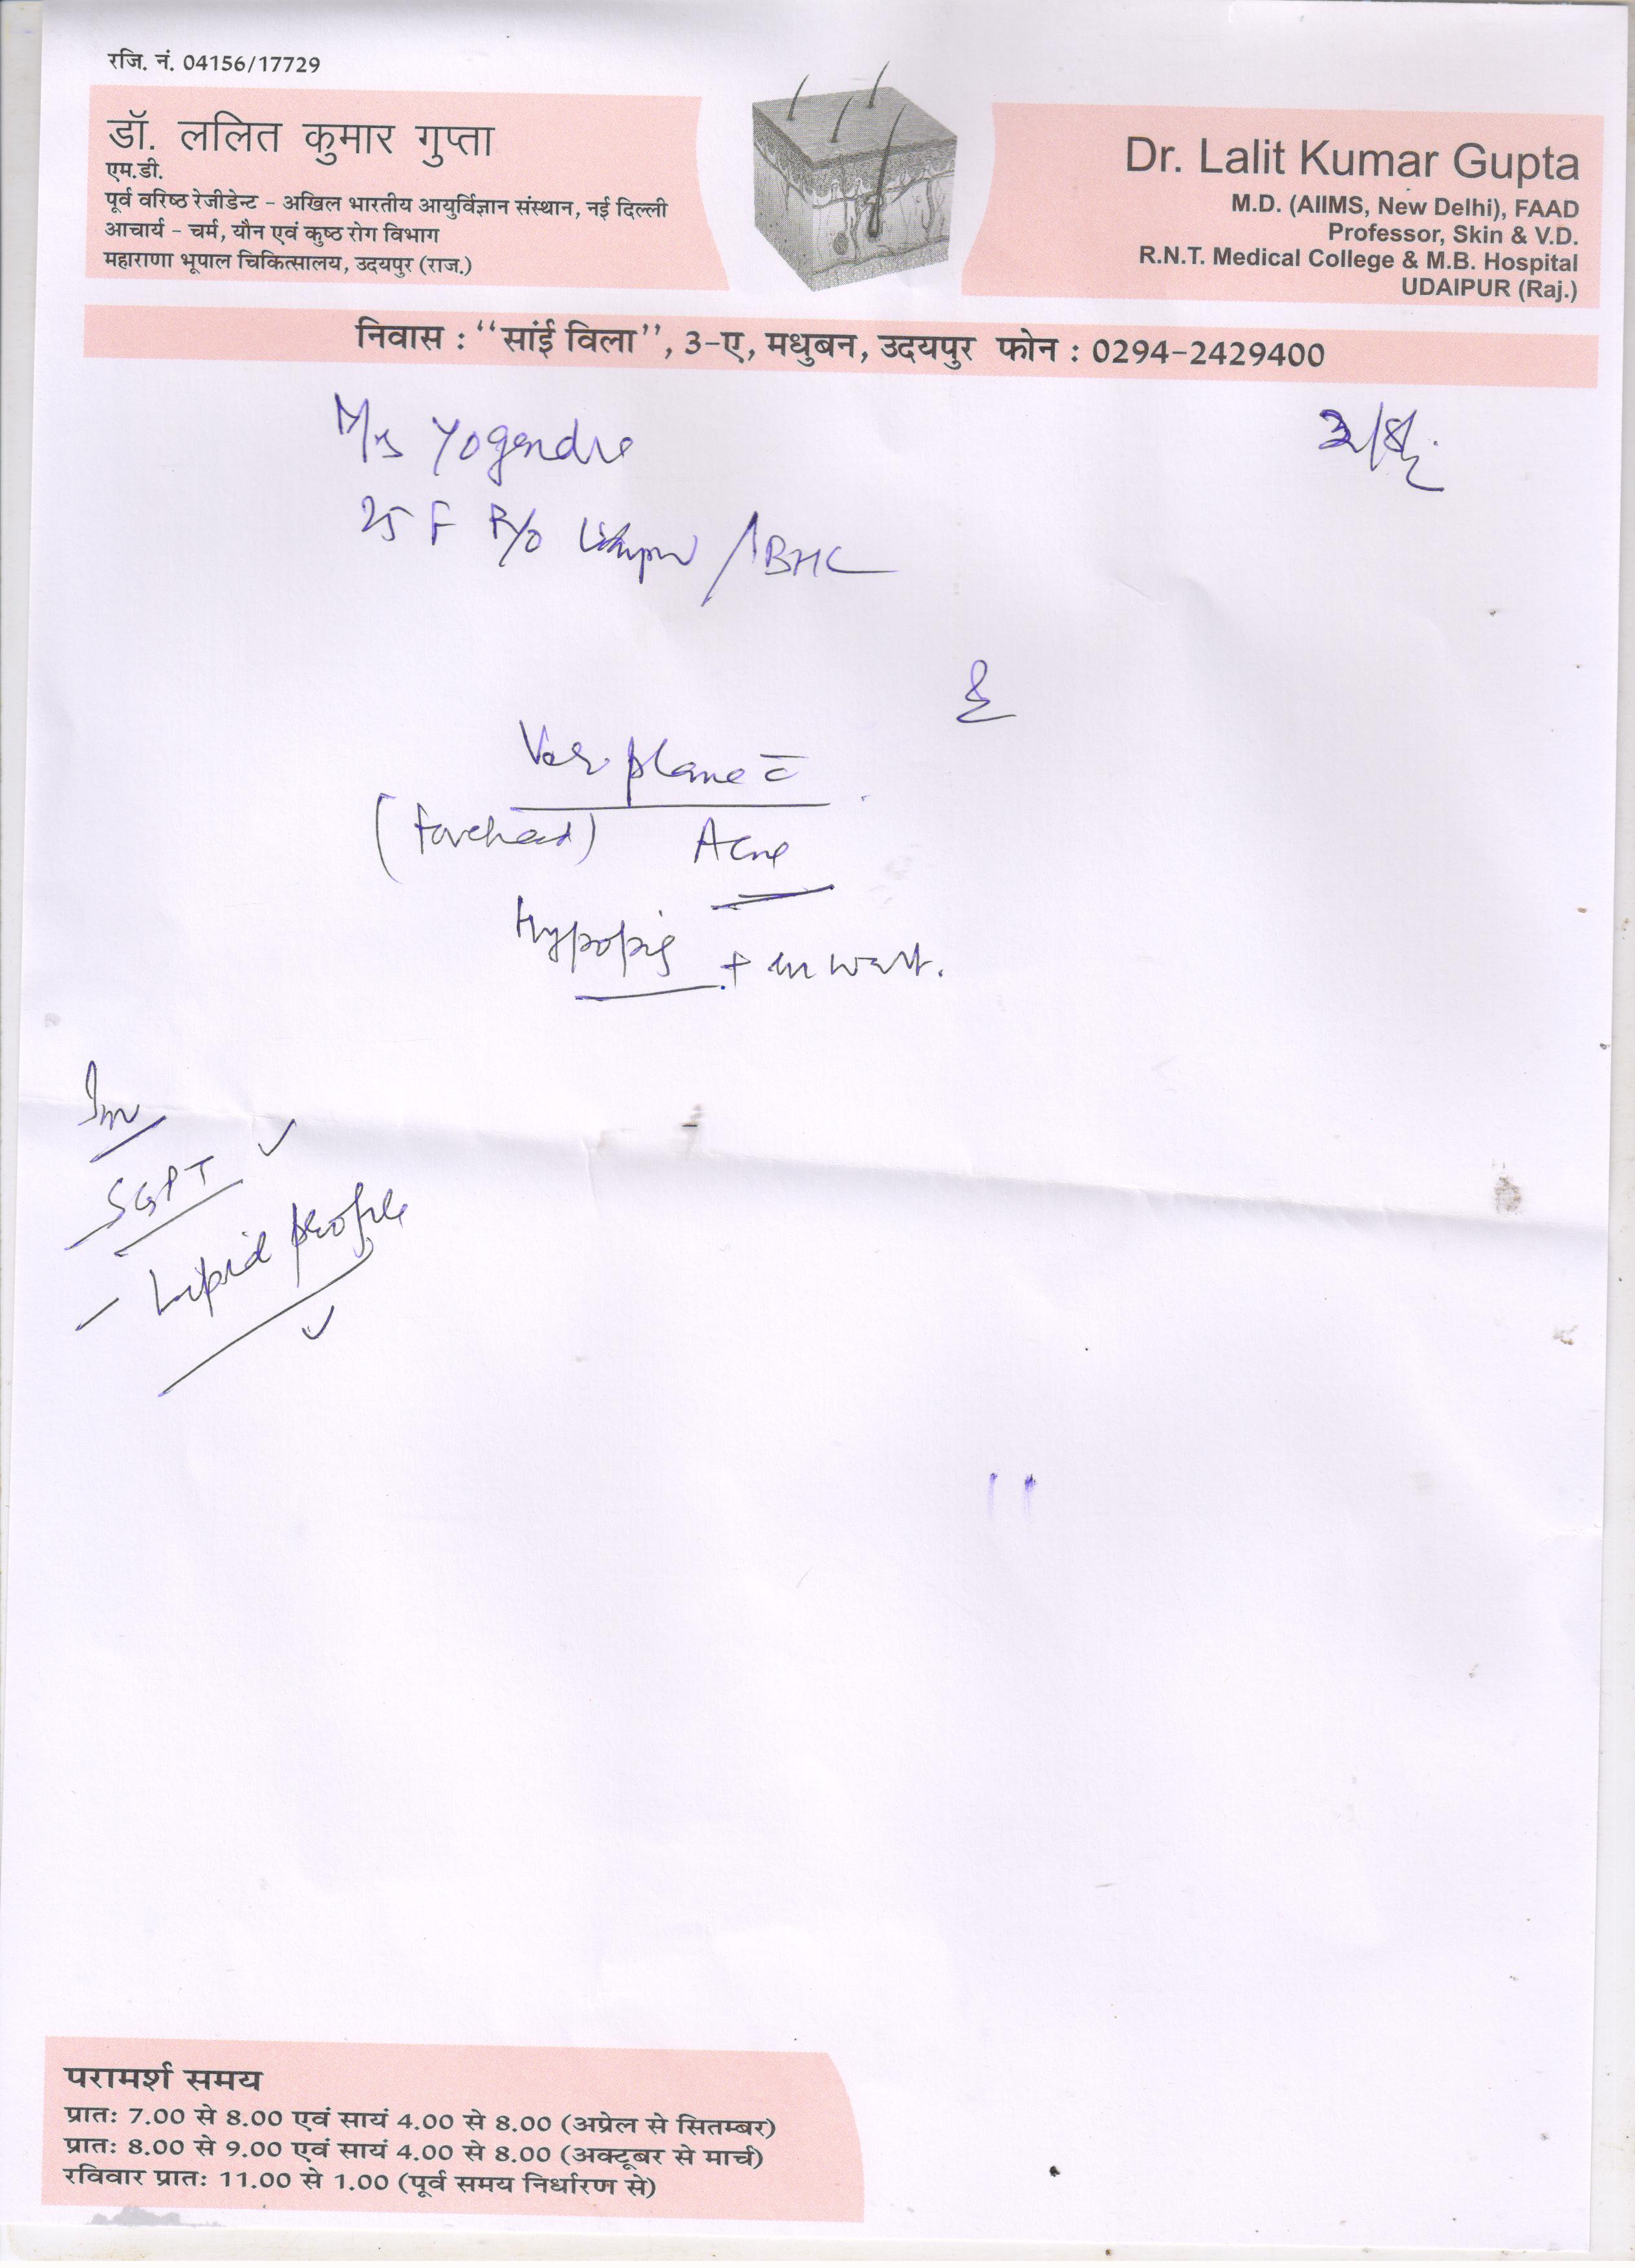 रजि. नं. 04156/17729
डॉ. ललित कुमार गुप्ता
एम.डी.
पूर्व वरिष्ठ रेजीडेन्ट - अखिल भारतीय आयुर्विज्ञान संस्थान, नई दिल्ली
आचार्य - चर्म, यौन एवं कुष्ठ रोग विभाग
महाराणा भूपाल चिकित्सालय, उदयपुर (राज.)
Dr. Lalit Kumar Gupta
M.D. (AIIMS, New Delhi), FAAD
Professor, Skin & V.D.
R.N.T. Medical College & M.B. Hospital
UDAIPUR (Raj.)
निवास : “सांई विला”, 3-ए, मधुबन, उदयपुर फोन : 0294-2429400
Yogendre
25 F R/o
plane
(forehead) Acne
Hypopig +
Inv
SGPT
- Lipid profile
परामर्श समय
प्रातः 7.00 से 8.00 एवं सायं 4.00 से 8.00 (अप्रेल से सितम्बर)
प्रातः 8.00 से 9.00 एवं सायं 4.00 से 8.00 (अक्टूबर से मार्च)
रविवार प्रातः 11.00 से 1.00 (पूर्व समय निर्धारण से)